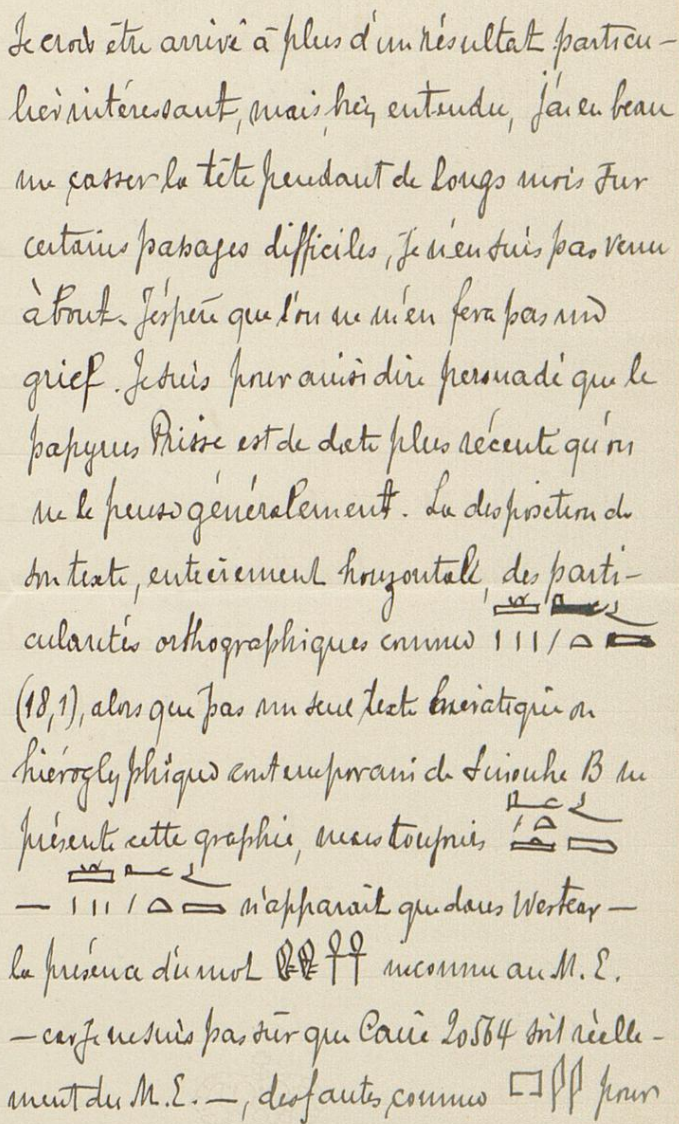 Je crois être arrivé à plus d'un résultat particu-
lier intéressant, mais, bien entendu, j'ai eu beau
me casser la tête pendant de longs mois sur
certains passages difficiles, je n'en suis pas venu
à bout. J'espère que l'on ne m'en fera pas un
grief. Je suis pour ainsi dire persuadé que le
papyrus Prisse est de date plus récente qu'on
ne le pense généralement. La disposition de
son texte, entièrement horizontale, des parti-
cularités orthographiques comme
(18,1), alors que pas un seul texte hiératique ou
hiéroglyphique contemporain de Sinouhe B ne
présente cette graphie, mais toujours
— n'apparait que dans Westcar —
la présence du mot inconnu au M. E.
— car je ne suis pas sûr que Caire 20564 soit réelle-
ment du M. E. —, des fautes comme pour